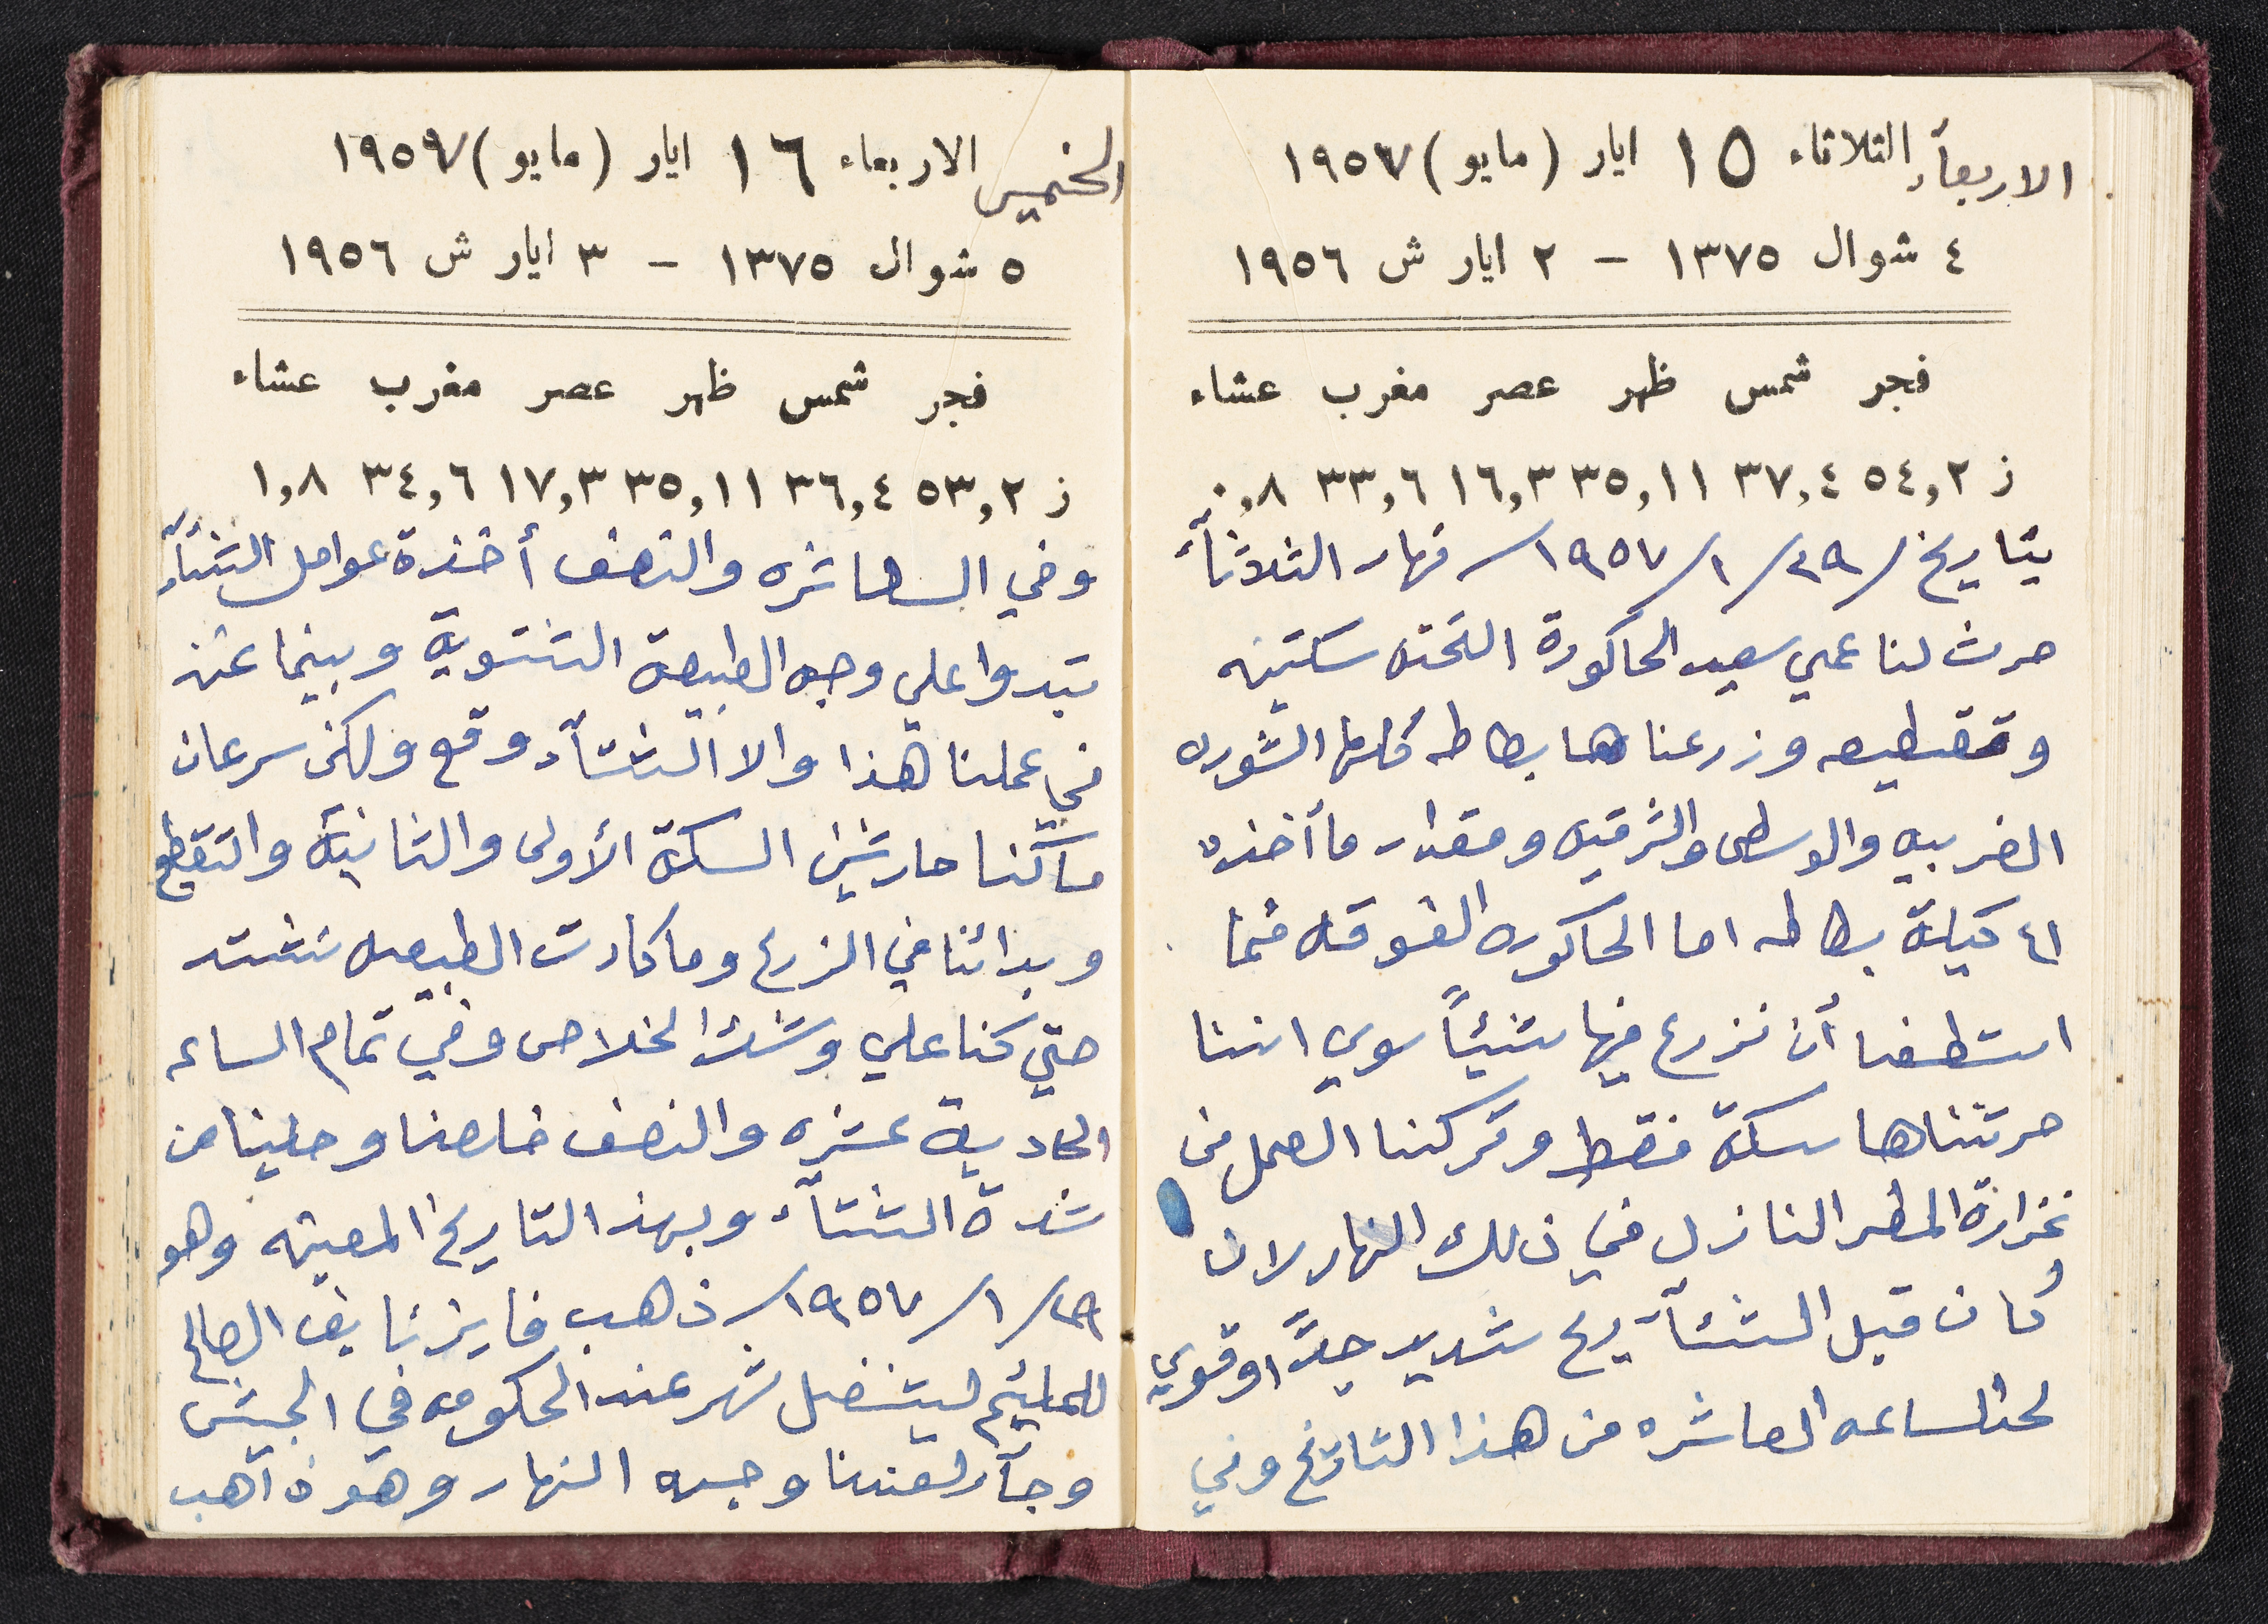 الاربعآء الثلاثاء ١٥ ايار (مايو) ١٩٥٧
٤ شوال ١٣٧٥ – ٢ ايار ش ١٩٥٦
فجر شمس ظهر عصر مغرب عشاء
ز ٥٤,٢ ٣٧,٤ ٣٥,١١ ١٦,٣ ٣٣,٦ ٠,٨
بتاريخ ٢٩/١/١٩٥٧/ نهار الثلاثآء
حرث لنا عمي سعيد الحاكورة التحته سكتينه
وتقطيعه وزرعناها بطاطه كلها الشوره
الغربيه والوسطى والشرقيه ومقدار ما أخذه
٤١ كيلة بطاطه اما الحاكوره الفوقه فما
استطعنا أن نزرع فيها شيئاً سوي اننا
حرثناها سكة فقط وتركنا العمل من
غزارة المطر النازل في ذلك النهار لان
وكان قبل الشتآء ريح شديد جداً وقوي
لحد الساعه العاشره من هذا التاريخ وفي
الخميس الاربعاء ١٦ ايار (مايو) ١٩٥٧
٥ شوال ١٣٧٥ – ٣ ايار ش ١٩٥٦
فجر شمس ظهر عصر مغرب عشاء
ز ٥٣,٢ ٣٦,٤ ٣٥,١١ ١٧,٣ ٣٤,٦ ١,٨
وفي العاشره والنصف أخذة عوامل الشتآء
تبدوا علي وجه الطبيعة الشتوية وبينما نحن
في عملنا هذا والا الشتآء وقع ولكن سرعان
ما كنا حارثين السكة الأولى والثانية والتقطيع
وبدائنا في الزرع وما كادت الطبيعه تشتد
حتي كنا علي وشك الخلاص وفي تمام الساعه
الحادية عشره والنصف خلصنا وحلينا من
شدة الشتآء وبهذا التاريخ المعينه وهو
٢٩/١/١٩٥٧/ ذهب فايز نايف الصالح
ليتشغل شهر عند الحكومه في الجيش
وجآء لعندنا وجه النهار وهو ذاهب